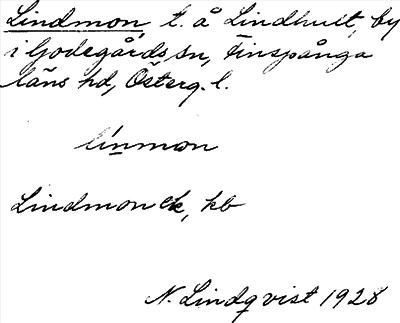 Lindmon, t. å Lindhult, by
i Godegårds sn, Finspånga
läns hd, Österg. l.
linmon
Lindmon ek, kb
N. Lindqvist 1928